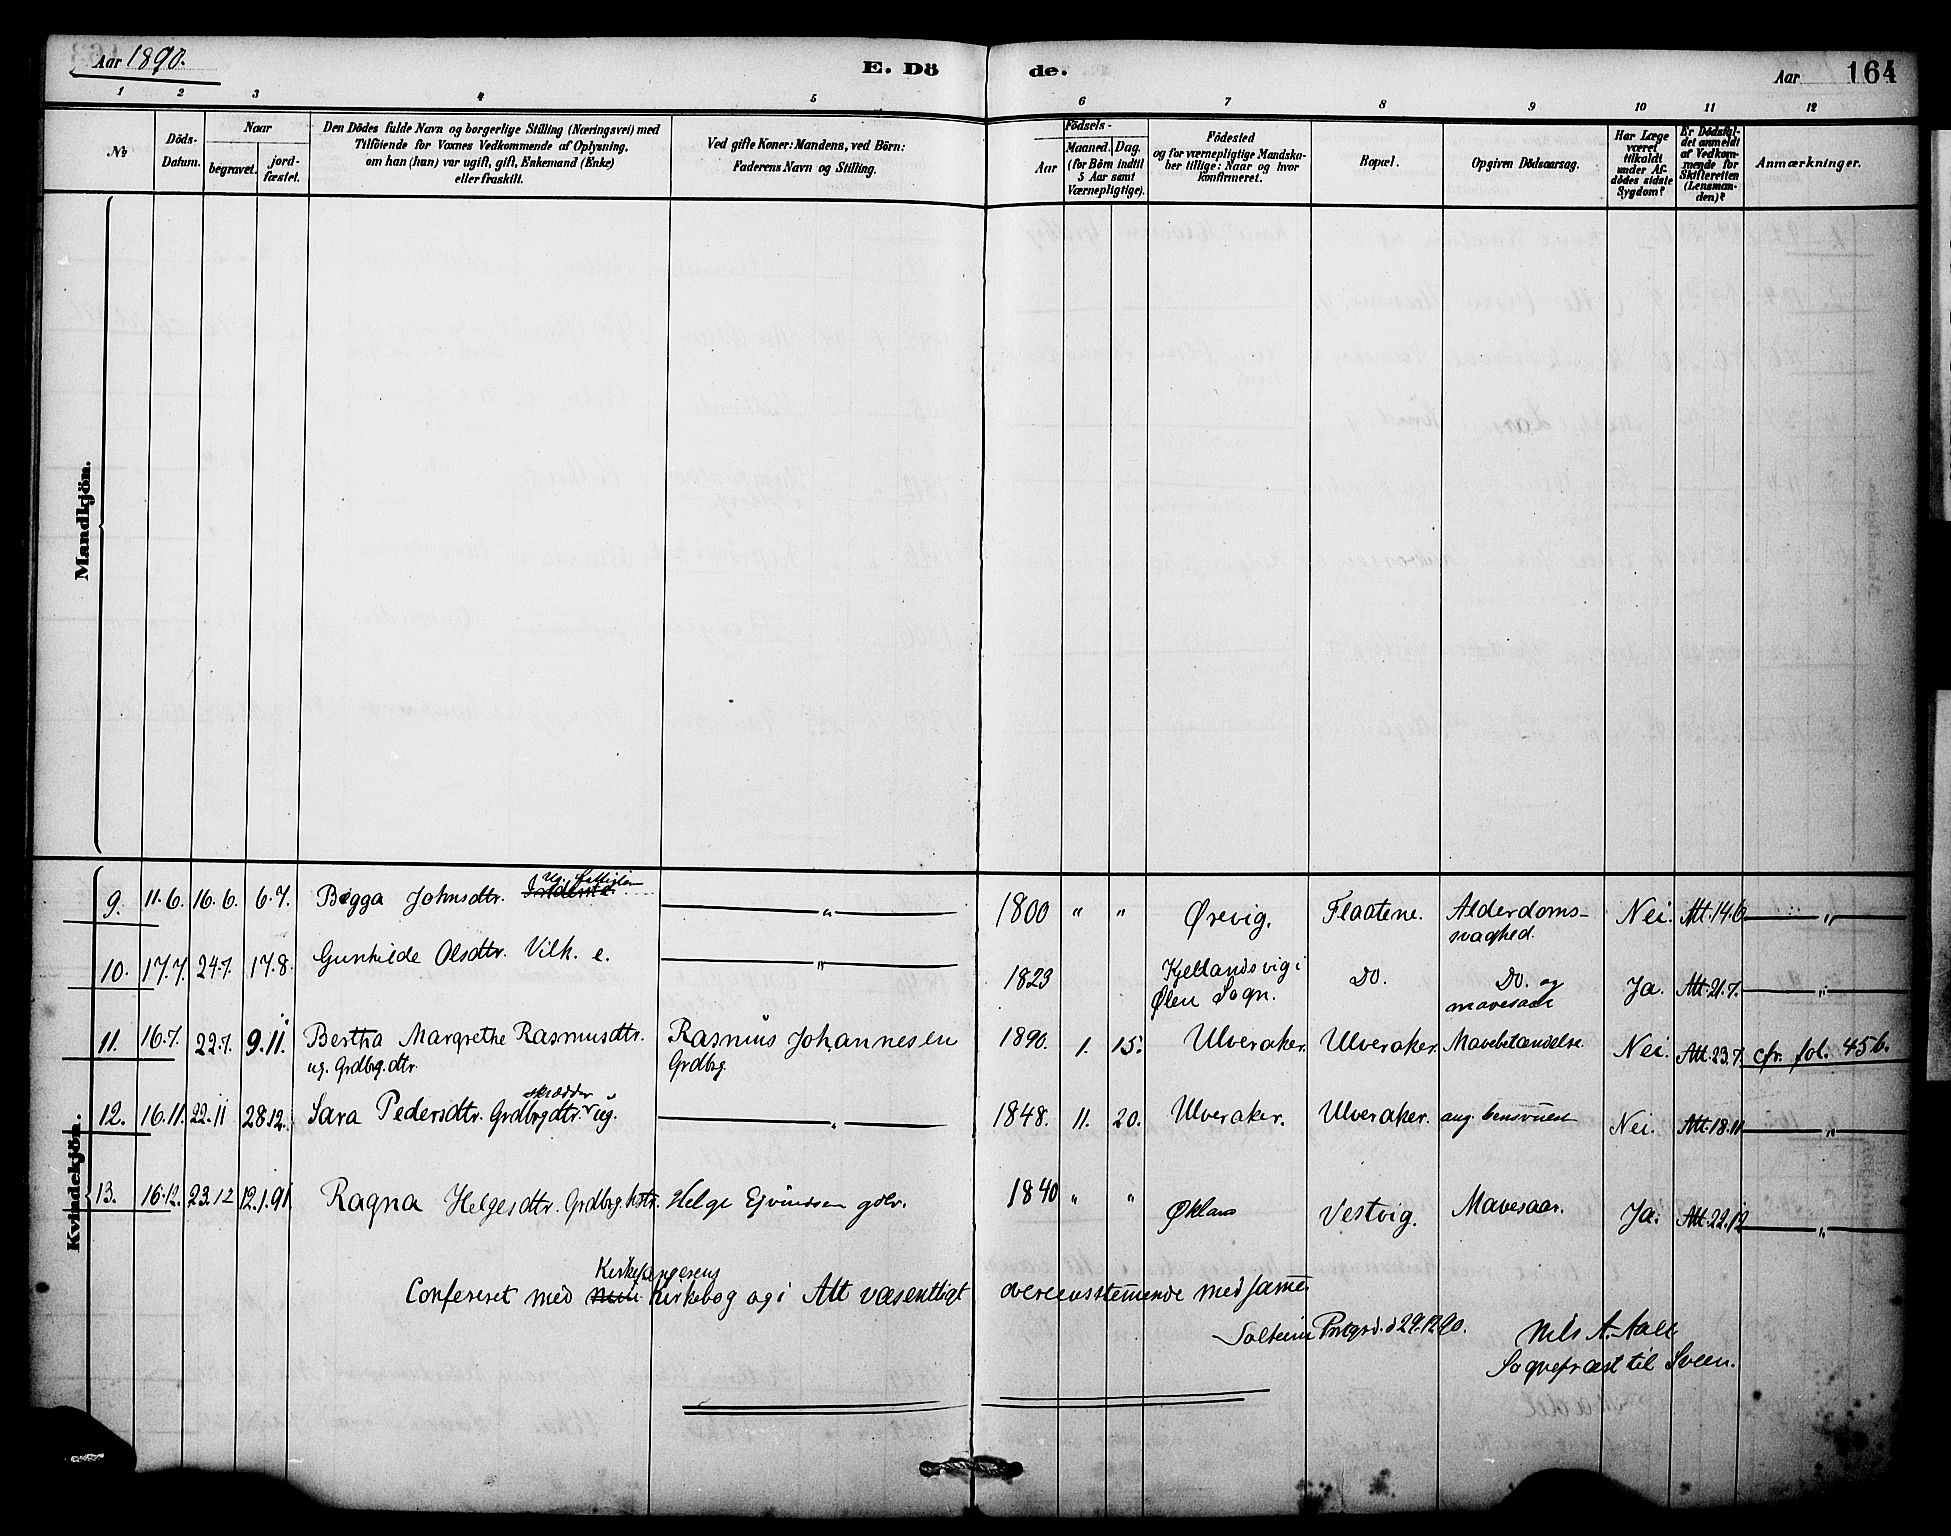 Aar 1890.
E. Dö de.
Aar 164
1 2 3 4 5 6 7 8 9 10 11 12
No
Döds-Datum.
Naar
begravet.
jord-fæstet.
Den Dödes fulde Navn og borgerlige Stilling (Næringsvei) med
Tilföiende for Voxnes Vedkommende af Oplysning,
om han (hun) var ugift, gift, Enkemand (Enke)
eller fraskilt.
Ved gifte Koner: Mandens, ved Börn:
Faderens Navn og Stilling.
Födsels-
Aar
Maaned. Dag.
(for Börn indtil
5 Aar samt
Værnepligtige).
Födested
og for værnepligtige Mandska-
ber tillige: Naar og hvor
konfirmeret.
Bopæl.
Opgiven Dödsaarsag.
Har Læge
været
tilkaldt
under Af-
dödes sidste
Sygdom?
Er Dödsfal-
det anmeldt
af Vedkom-
mende for
Skifteretten
(Lensman-
den)?
Anmærkninger.
Mandkjön.
Kvindekjön.
9. 11.6. 16.6. 6.7. Bigga Johnsdtr. ug. " 1800 " " Ørevig. Flaatene. Alderdoms-
svaghed. Nei. Att. 14.6 "
10. 17.7. 24.7. 17.8. Gunhilde Olsdtr. Vilk. e. " 1823 Kjellandsvig i
Ølen Sogn. Do. Do. og
mavesaar Ja. Att. 21.7. "
11. 16.7. 22.7. 9.11. Bertha Margrethe Rasmusdtr. Rasmus Johannesen 1890. 1. 15. Ulveraker. Ulveraker. Mavebetændelse. Nei. Att. 23.7. cfr. fol. 456.
ug. Grdbrg.dtr. Grdbrg.
skrædder
12. 16.11. 22.11 28.12. Sara Pedersdtr. Grdbrgdtr. ug. " 1848. 11. 20. Ulveraker. Ulveraker. Nei. Att. 18.11 "
13. 16.12. 23.12 12.1.91. Ragna Helgesdtr. Grdbrg.kstr. Helge Ejvindsen gdbr. 1840 " " Økland Vestvig. Mavesaar. Ja. Att. 22.12 "
Kirkesangerens
Confereret med Min Kirkebog og i Alt væsentligt overeensstemmende med samme.
Præstgrd. d 29.12.90. Nils A. Aall
Sogneprest til Sveen.